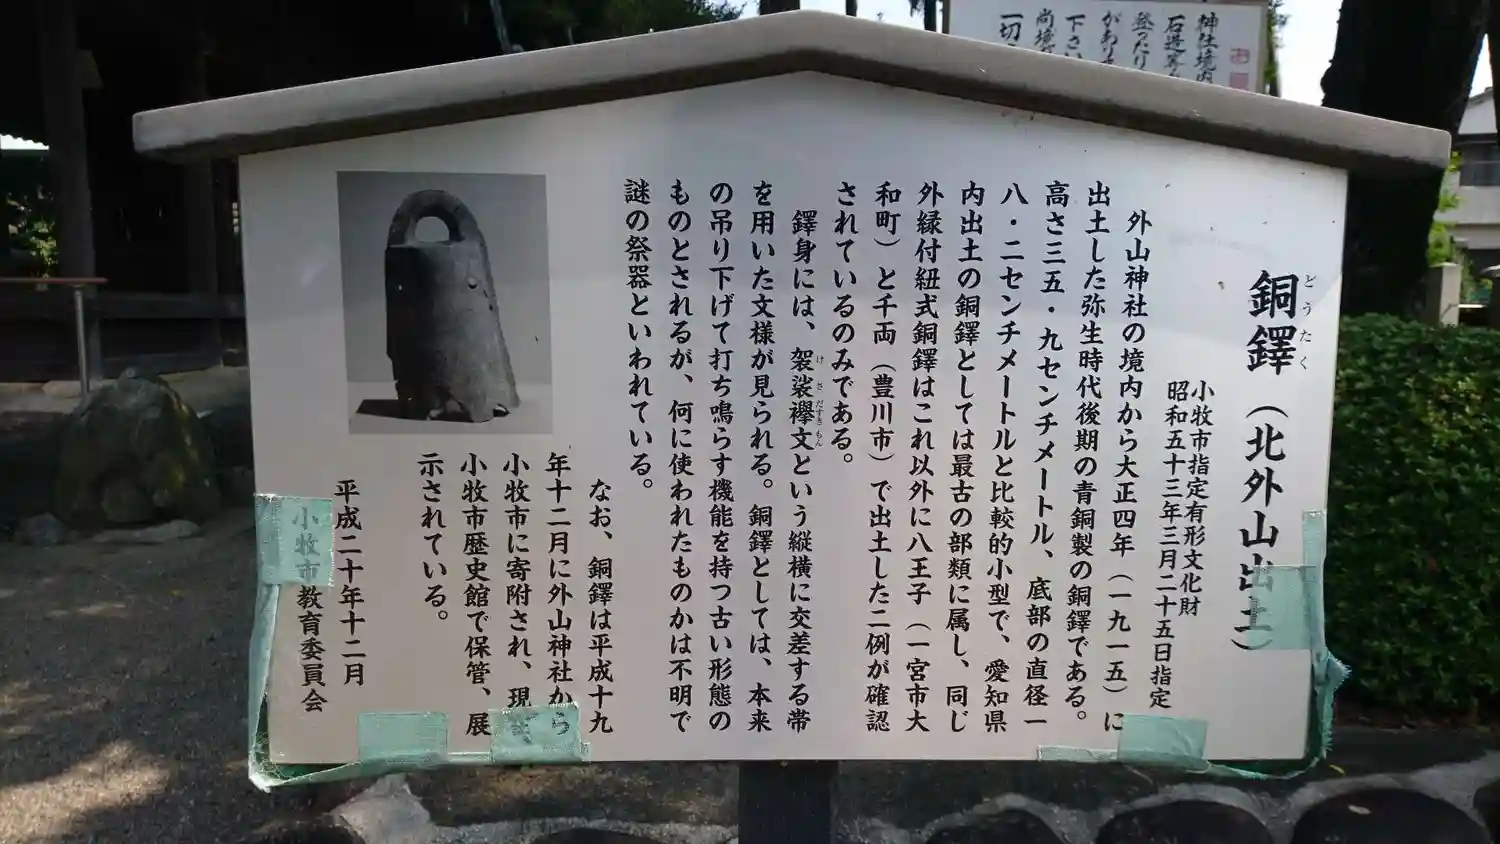 銅鐸（北外山出土）
どうたく
小牧市指定有形文化財
昭和五十三年三月二十五日指定
外山神社の境内から大正四年（一九一五）に
出土した弥生時代後期の青銅製の銅鐸である。
高さ三五・九センチメートル、底部の直径一
八・二センチメートルと比較的小型で、愛知県
内出土の銅鐸としては最古の部類に属し、同じ
外縁付紐式銅鐸はこれ以外に八王子（一宮市大
和町）と千両（豊川市）で出土した二例が確認
されているのみである。
鐸身には、袈裟襷文という縦横に交差する帯
けさだすきもん
を用いた文様が見られる。銅鐸としては、本来
の吊り下げて打ち鳴らす機能を持つ古い形態の
ものとされるが、何に使われたものかは不明で
謎の祭器といわれている。
なお、銅鐸は平成十九
年十二月に外山神社から
小牧市に寄附され、現在
小牧市歴史館で保管、展
示されている。
平成二十年十二月
小牧市教育委員会
神社境内
石造等
登ったり
があり
下さい
尚境
一切